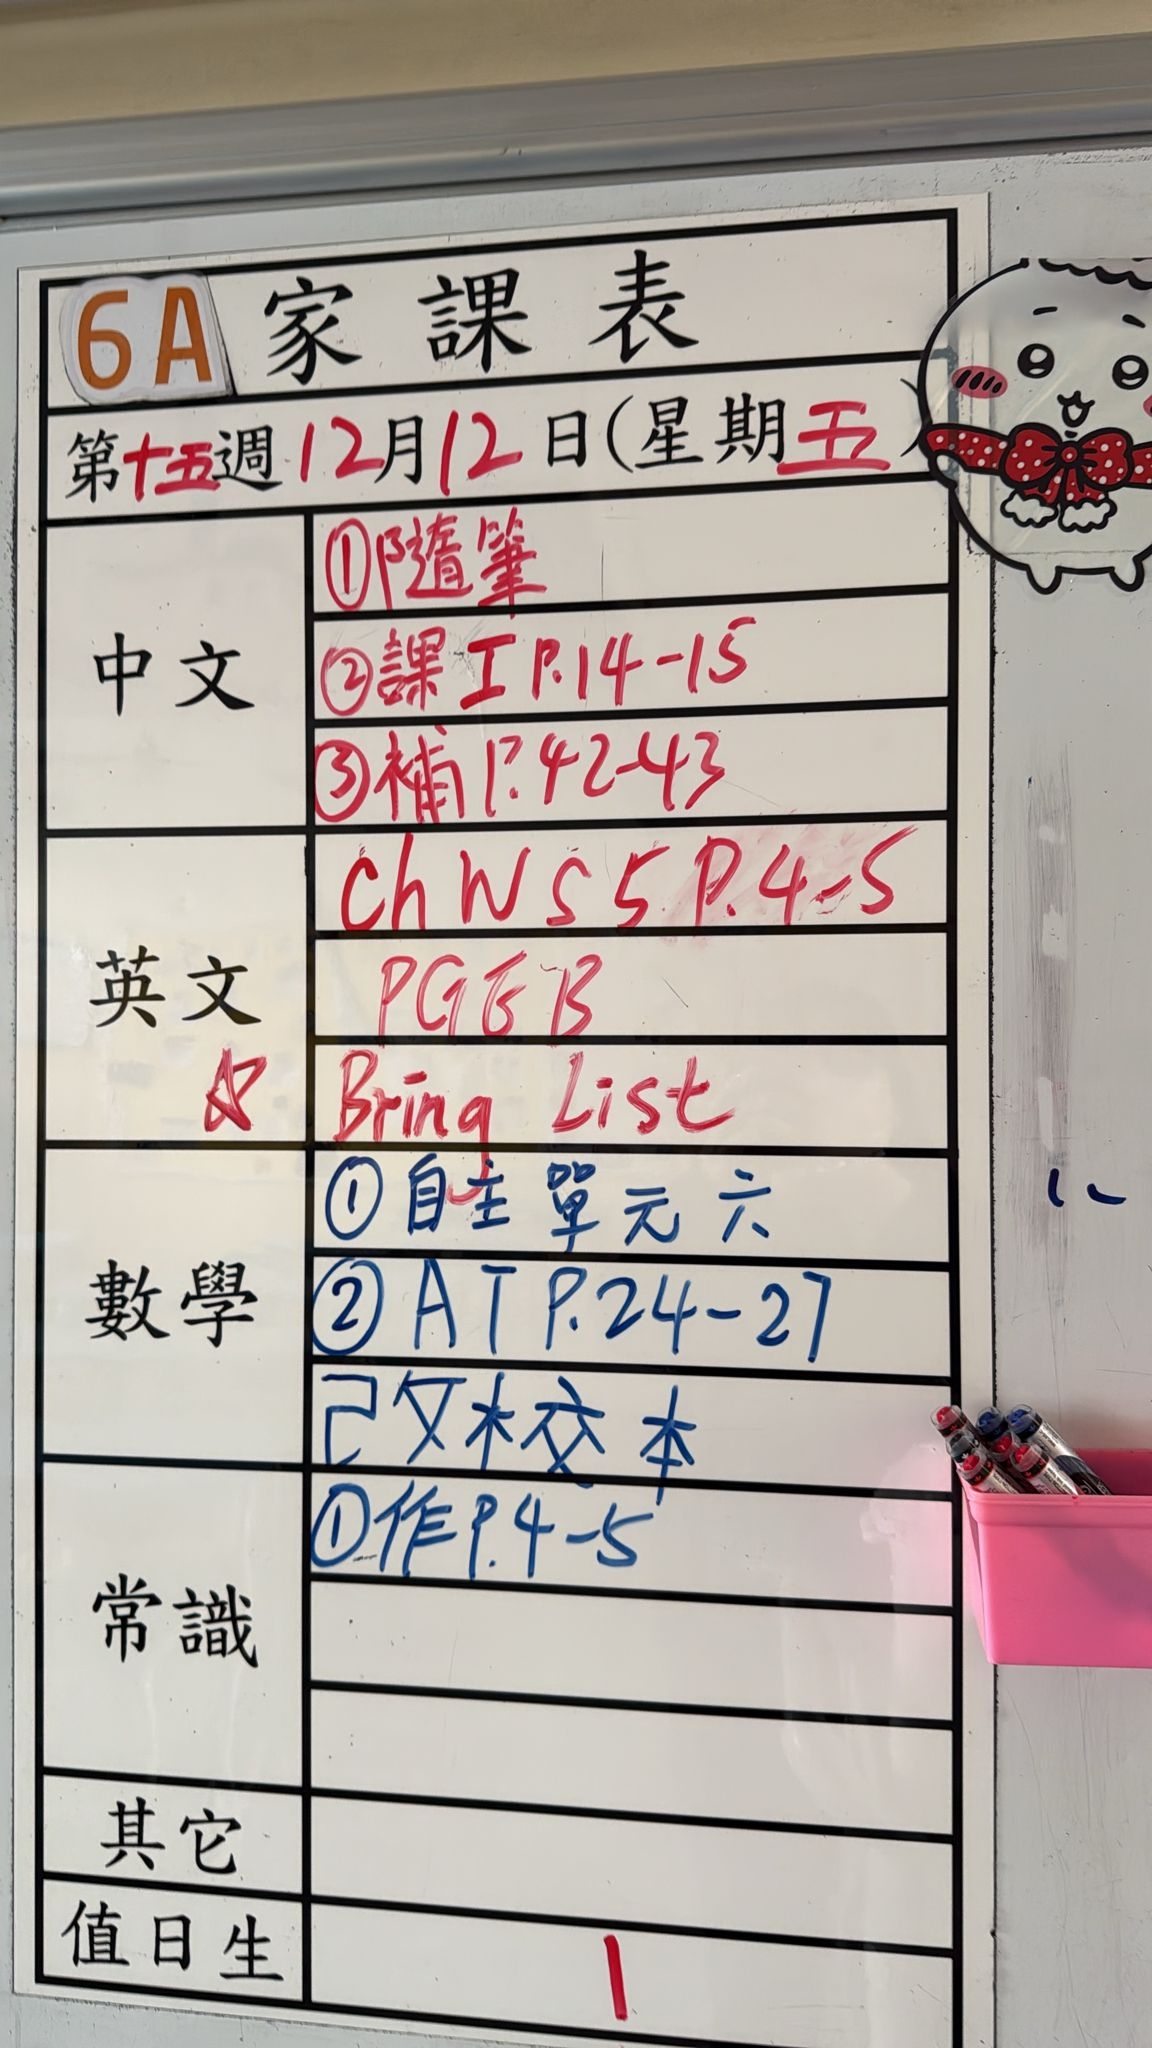 6A 家課表
第十五週12月12日(星期五)
中文
①隨筆
②課工P.14-15
③補P.42-43
英文
Ch WS5 P.4-5
PGEB
☆ Bring List
數學
①自主單元六
②AT P.24-27
改校本
常識
①作P.4-5
其它
值日生
1